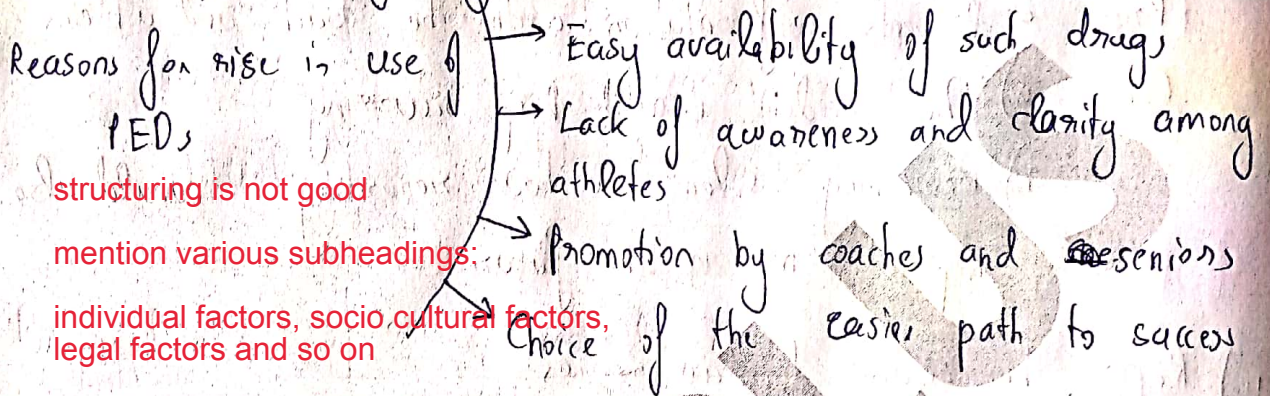 Reasons for rise in use of
PEDs
→ Easy availability of such drugs
→ Lack of awareness and clarity among
athletes
→ Promotion by coaches and seniors
→ Choice of the easier path to success
structuring is not good
mention various subheadings:
individual factors, socio cultural factors,
legal factors and so on